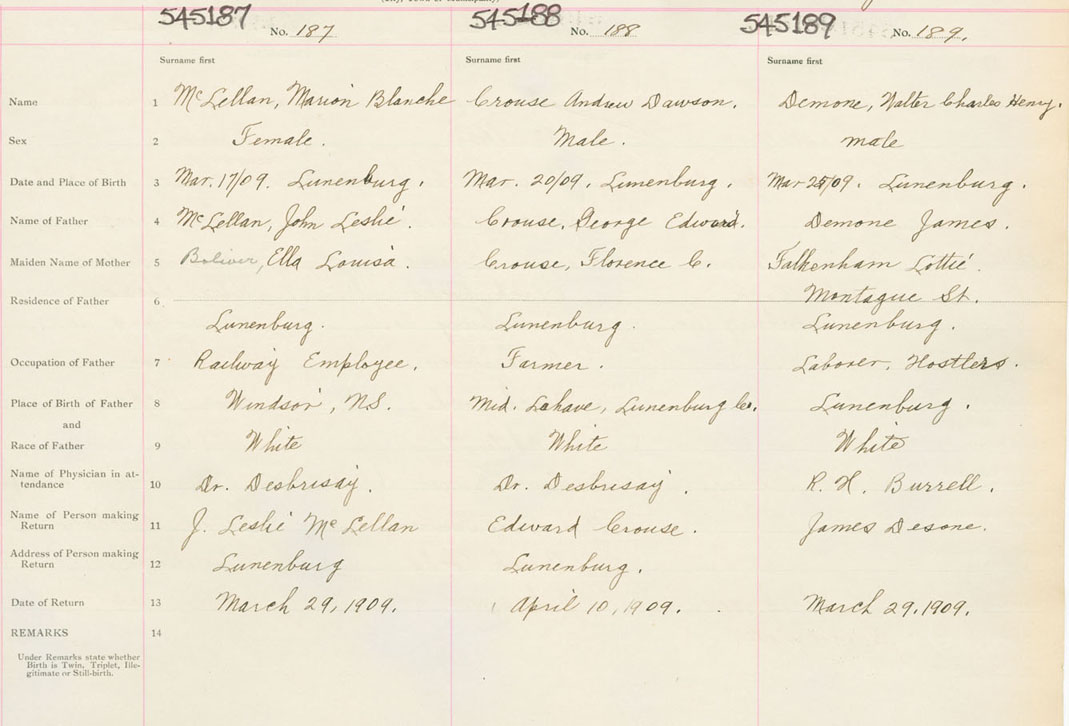 545187 No. 187 545188 No. 188 545189 No. 189.
Surname first Surname first Surname first
Name 1 McLellan, Marion Blanche Crouse Andrew Dawson. Demone, Walter Charles Henry.
Sex 2 Female. Male. male
Date and Place of Birth 3 Mar. 17/09. Lunenburg. Mar. 20/09. Lunenburg. Mar 25/09. Lunenburg.
Name of Father 4 McLellan, John Leslie. Crouse, George Edward. Demone James.
Maiden Name of Mother 5 Boliver, Ella Louisa. Crouse, Florence C. Falkenham Lottie.
Residence of Father 6 Montague St.
Lunenburg. Lunenburg. Lunenburg.
Occupation of Father 7 Railway Employee. Farmer. Laborer, Hostlers.
Place of Birth of Father 8 Windsor, N.S. Mid. Lahave, Lunenburg Co. Lunenburg.
and
Race of Father 9 White White White
Name of Physician in at-
tendance 10 Dr. Desbrisay. Dr. Desbrisay. R. H. Burrell.
Name of Person making
Return 11 J. Leslie McLellan Edward Crouse. James Desone.
Address of Person making
Return 12 Lunenburg Lunenburg.
Date of Return 13 March 29, 1909. April 10, 1909. March 29, 1909.
REMARKS 14
Under Remarks state whether
Birth is Twin, Triplet, Ille-
gitimate or Still-birth.